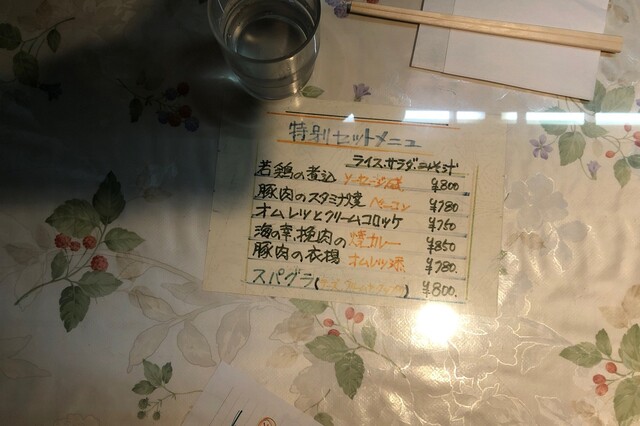 特別セットメニュー
ライス、サラダ、ミニみそ汁
若鶏の煮込 ソーセージ添 ¥800
豚肉のスタミナ焼 ベーコン ¥780
オムレツとクリームコロッケ ¥750
海の幸、挽肉の焼カレー ¥850
豚肉の衣揚 オムレツ添 ¥780.
スパグラ ¥800.